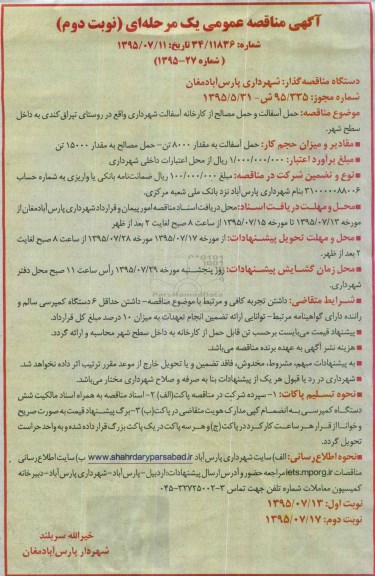 آگهی مناقصه عمومی یک مرحله‌ای (نوبت دوم)
شماره: ۳۴/۱۱۸۳۶ تاریخ: ۱۳۹۵/۰۷/۱۱
(شماره ۲۷-۱۳۹۵)
دستگاه مناقصه گذار: شهرداری پارس‌آبادمغان
شماره مجوز: ۹۵/۳۳۵ ش- ۱۳۹۵/۵/۳۱
موضوع مناقصه: حمل آسفالت و حمل مصالح از کارخانه آسفالت شهرداری واقع در روستای تپراق کندی به داخل
سطح شهر.
مقادیر و میزان حجم کار: حمل آسفالت به مقدار ۸۰۰۰ تن- حمل مصالح به مقدار ۱۵۰۰۰ تن
مبلغ برآورد اعتبار: ۱/۰۰۰/۰۰۰/۰۰۰ ریال از محل اعتبارات داخلی شهرداری
نوع و تضمین شرکت در مناقصه: مبلغ ۱۰۰/۰۰۰/۰۰۰ ریال ضمانت‌نامه بانکی یا واریزی به شماره حساب
۳۱۰۰۰۰۰۸۸۰۰۶ بنام شهرداری پارس آباد نزد بانک ملی شعبه مرکزی.
محل و مهلت دریافت اسناد: محل دریافت اسناد مناقصه امور پیمان و قرارداد شهرداری پارس‌آبادمغان از
مورخه ۱۳۹۵/۰۷/۱۳ تا مورخه ۱۳۹۵/۰۷/۱۵ از ساعت ۸ صبح لغایت ۲ بعد از ظهر
محل و مهلت تحویل پیشنهادات: از مورخه ۱۳۹۵/۰۷/۱۷ مورخه ۱۳۹۵/۰۷/۲۸ از ساعت ۸ صبح لغایت
۲ بعد از ظهر.
محل زمان گشایش پیشنهادات: روز پنجشنبه مورخه ۱۳۹۵/۰۷/۲۹ رأس ساعت ۱۱ صبح محل دفتر
شهرداری.
شرایط متقاضی: داشتن تجربه کافی و مرتبط با موضوع مناقصه- داشتن حداقل ۶ دستگاه کمپرسی سالم و
راننده دارای گواهینامه مرتبط- توانایی ارائه تضمین انجام تعهدات به میزان ۱۰ درصد مبلغ کل قرارداد.
پیشنهاد قیمت می‌بایست برحسب تن قابل حمل از کارخانه به داخل سطح شهر محاسبه و ارائه گردد.
هزینه نشر آگهی به عهده برنده مناقصه می‌باشد.
به پیشنهادات مبهم، مشروط، مخدوش، فاقد تضمین و یا تحویل خارج از موعد مقرر ترتیب اثر داده نخواهد شد.
شهرداری در رد یا قبول هر یک از پیشنهادات بنا به صرفه و صلاح شهرداری مختار می‌باشد.
نحوه تسلیم پاکات: ۱- سپرده شرکت در مناقصه پاکت (الف) ۲- اسناد مناقصه به همراه اسناد مالکیت شش
دستگاه کمپرسی به انضمام کپی مدارک هویت متقاضی در پاکت (ب) ۳- برگ پیشنهاد قیمت به صورت صریح
و خوانا از قرار هر ساعت کارکرد در پاکت (ج) و هر سه پاکت در یک پاکت بزرگ قرار داده شده و به واحد حراست
تحویل گردد.
نحوه اطلاع رسانی: الف) سایت شهرداری پارس آباد www.shahrdaryparsabad.ir ب) سایت اطلاع رسانی
مناقصات iets.mporg.ir مراجعه حضور و آدرس ارسال پیشنهادات: اردبیل- پارس‌آباد- شهرداری پارس‌آباد- دبیرخانه
کمیسیون معاملات شماره تلفن جهت تماس ۳-۳۲۷۲۵۰۰۲-۰۴۵
نوبت اول: ۱۳۹۵/۰۷/۱۳
نوبت دوم: ۱۳۹۵/۰۷/۱۷
خیرالله سربلند
شهردار پارس‌آبادمغان